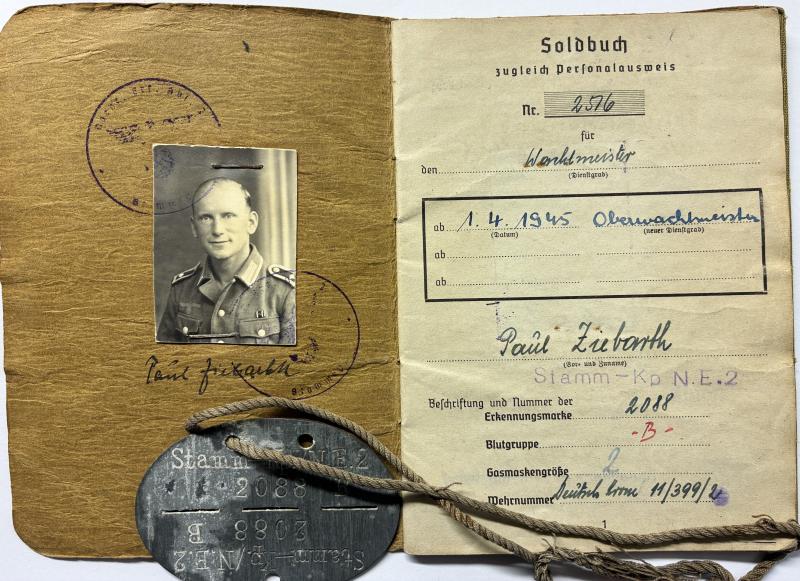 Paul Ziebarth
Stamm-Kp N.E.2
2088 B
2088 B
Stamm-Kp/N.E.2
Soldbuch
zugleich Personalausweis
Nr. 2516
für
den Wachtmeister
(Dienstgrad)
ab 1.4.1945 Oberwachtmeister
(Datum) (neuer Dienstgrad)
ab
ab
Paul Ziebarth
(Vor- und Zuname)
Stamm-Kp N.E.2
Beschriftung und Nummer der
Erkennungsmarke 2088
Blutgruppe -B-
Gasmaskengröße 2
Wehrnummer Deutsch Krone 11/399/2
1